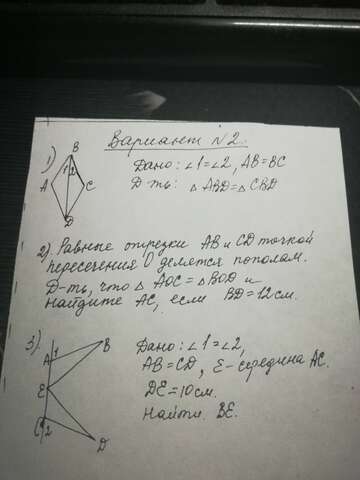 Вариант №2.
1)
Дано: ∠1=∠2, AB=BC
Д-ть: △ABD=△CBD
B
1 2
A
C
D
2). Равные отрезки AB и CD точкой
пересечения O делятся пополам.
Д-ть, что △ AOC=△BOD и
найдите AC, если BD=12см.
3).
Дано: ∠1=∠2,
AB=CD, E-середина AC.
DE=10см.
Найти. BE.
A 1 B
E
C 2
D